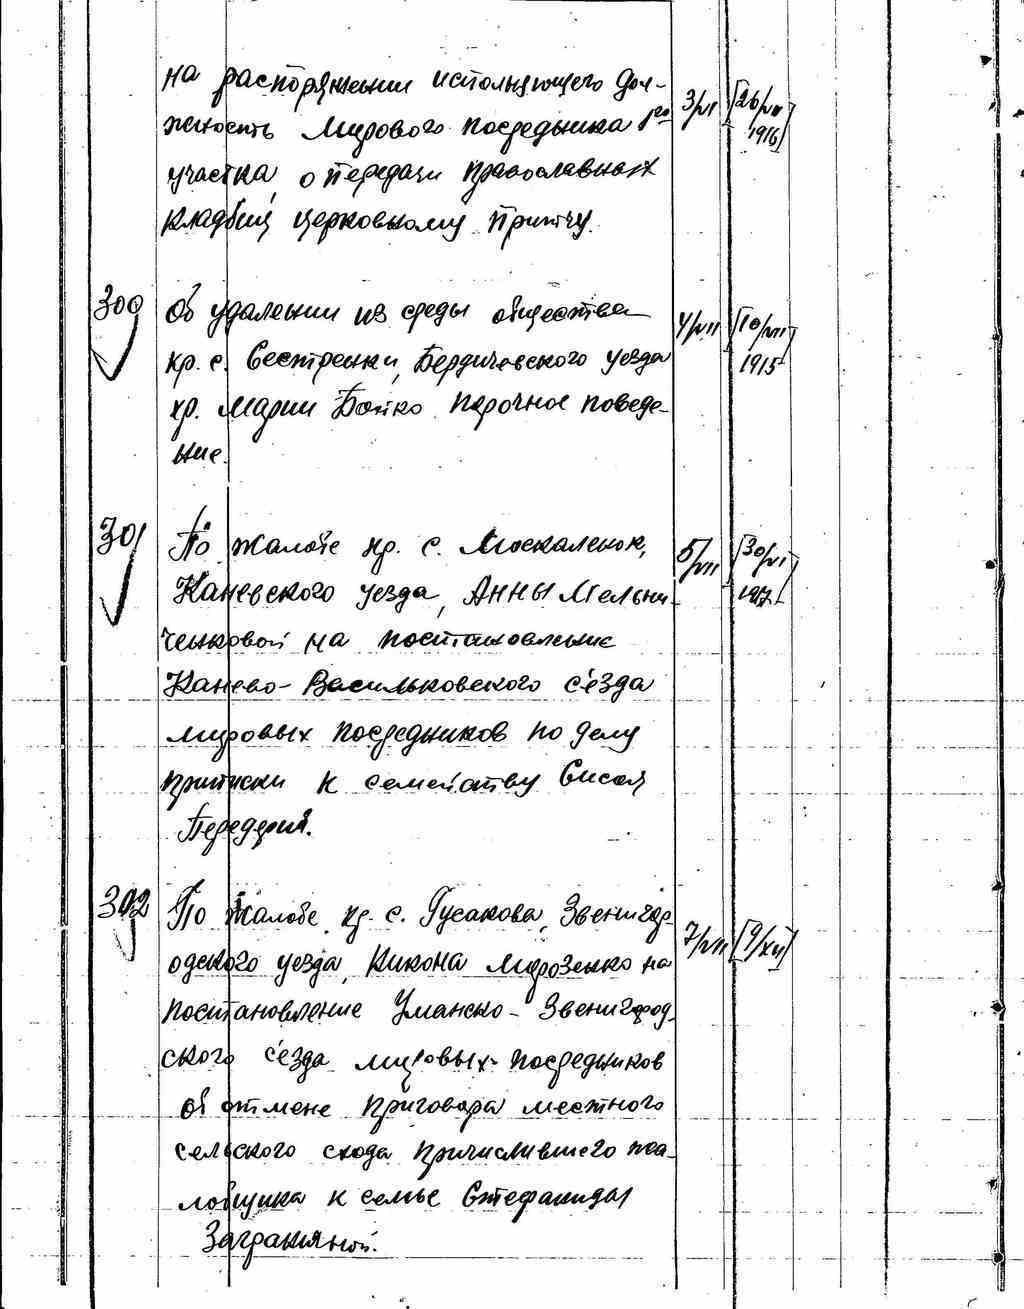 на распоряжении исполняющего дол-
жность Мирового посредника 1го 3/VI [26/VII
участка, о передачи православных 1916]
кладбищ церковному притчу.
300 Об удалении из среды общества 4/VII [10/VII]
кр. с. Сестренки, Бердичевского уезда 1915
кр. Марии Бойко порочное поведе-
ние.
301 По жалобе кр. с. Москаленок, 5/VII [30/VI]
Каневского уезда, Анны Мельни- 1917
ченковой на постановление
Канево-Васильковского с'езда
мировых посредников по делу
приписки к семейству Сисоя
Передерия.
302 По жалобе кр. с. Гусакова, Звенигор- 7/VII [9/XII]
одского уезда, Никона Морозенко на
постановление Уманско-Звенигород-
ского с'езда мировых посредников
об отмене приговора местного
сельского схода причислившего жа-
лобщика к семье Стефаниды
Заграничной.